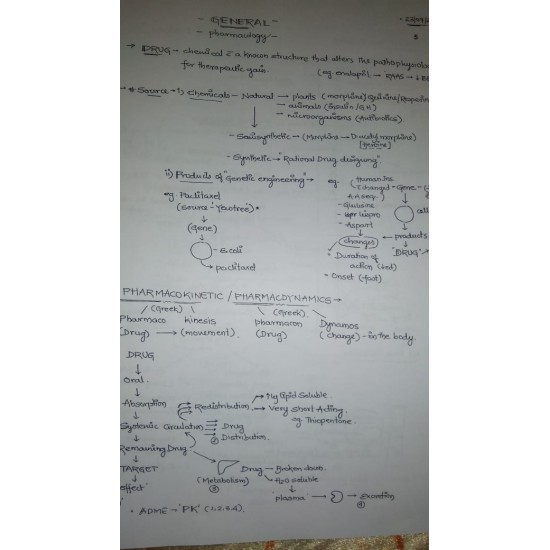 - GENERAL -
- pharmacology -
→ DRUG → chemical c̄ a known structure that alters the pathophysiology
for therapeutic gain. (eg. enalapril) → RAAS → ↓
→ * Source → i) Chemicals - Natural → plants (morphine) Quinine/
→ animals (Insulin/GH)
→ microorganisms (Antibiotics).
- Semisynthetic → (Morphine → Diacetyl morphine)
[Heroine]
- Synthetic → "Rational Drug designing".
ii) Products of "Genetic engineering" →
eg. Paclitaxel
(Source: Yewtree) •
(Gene)
E.coli
→ paclitaxel
eg. (Human Ins.
changed → Gene →
A.A seq.)
- Aspart
→ products
changes
"DRUG"
• Duration of
action
• Onset (fast)
PHARMACOKINETIC / PHARMCDYNAMICS →
(Greek) (Greek)
Pharmaco kinesis pharmacon Dynamos
(Drug) → (movement). (Drug) (change) - in the body.
DRUG
Oral
Absorption Redistribution → Hig lipid Soluble.
→ Very short Acting.
eg. Thiopentone.
Systemic Circulation → Drug
② Distribution.
Remaining Drug
TARGET Drug → Broken down.
(Metabolism) → H2O soluble
③
effect "plasma" → → Excretion
④
• ADME → 'PK' (1,2,3,4).